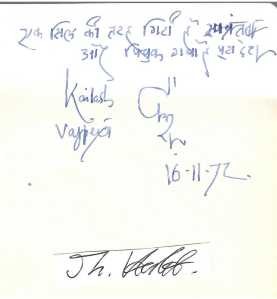 एक सिल की तरह गिरी है स्वतंत्रता
और पिचक गया है पूरा देश
Kailash
Vajpeyi
16-11-72
Th.